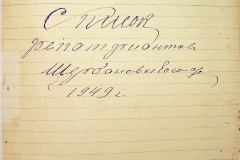 Список
репатриантов
Щербановского р
1949 г.